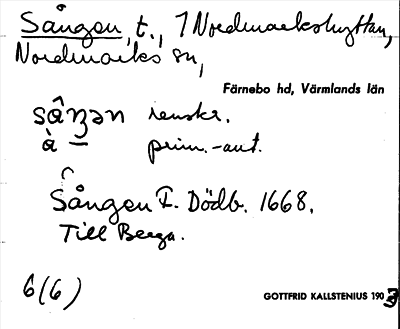 Sången, t., 7 Nordmarkshyttan,
Nordmarks sn,
Färnebo hd, Värmlands län
sâŋən renskr.
à – prim.-ant.
Sången I. Dödb. 1668.
Till Berga.
6(6)
GOTTFRID KALLSTENIUS 1903